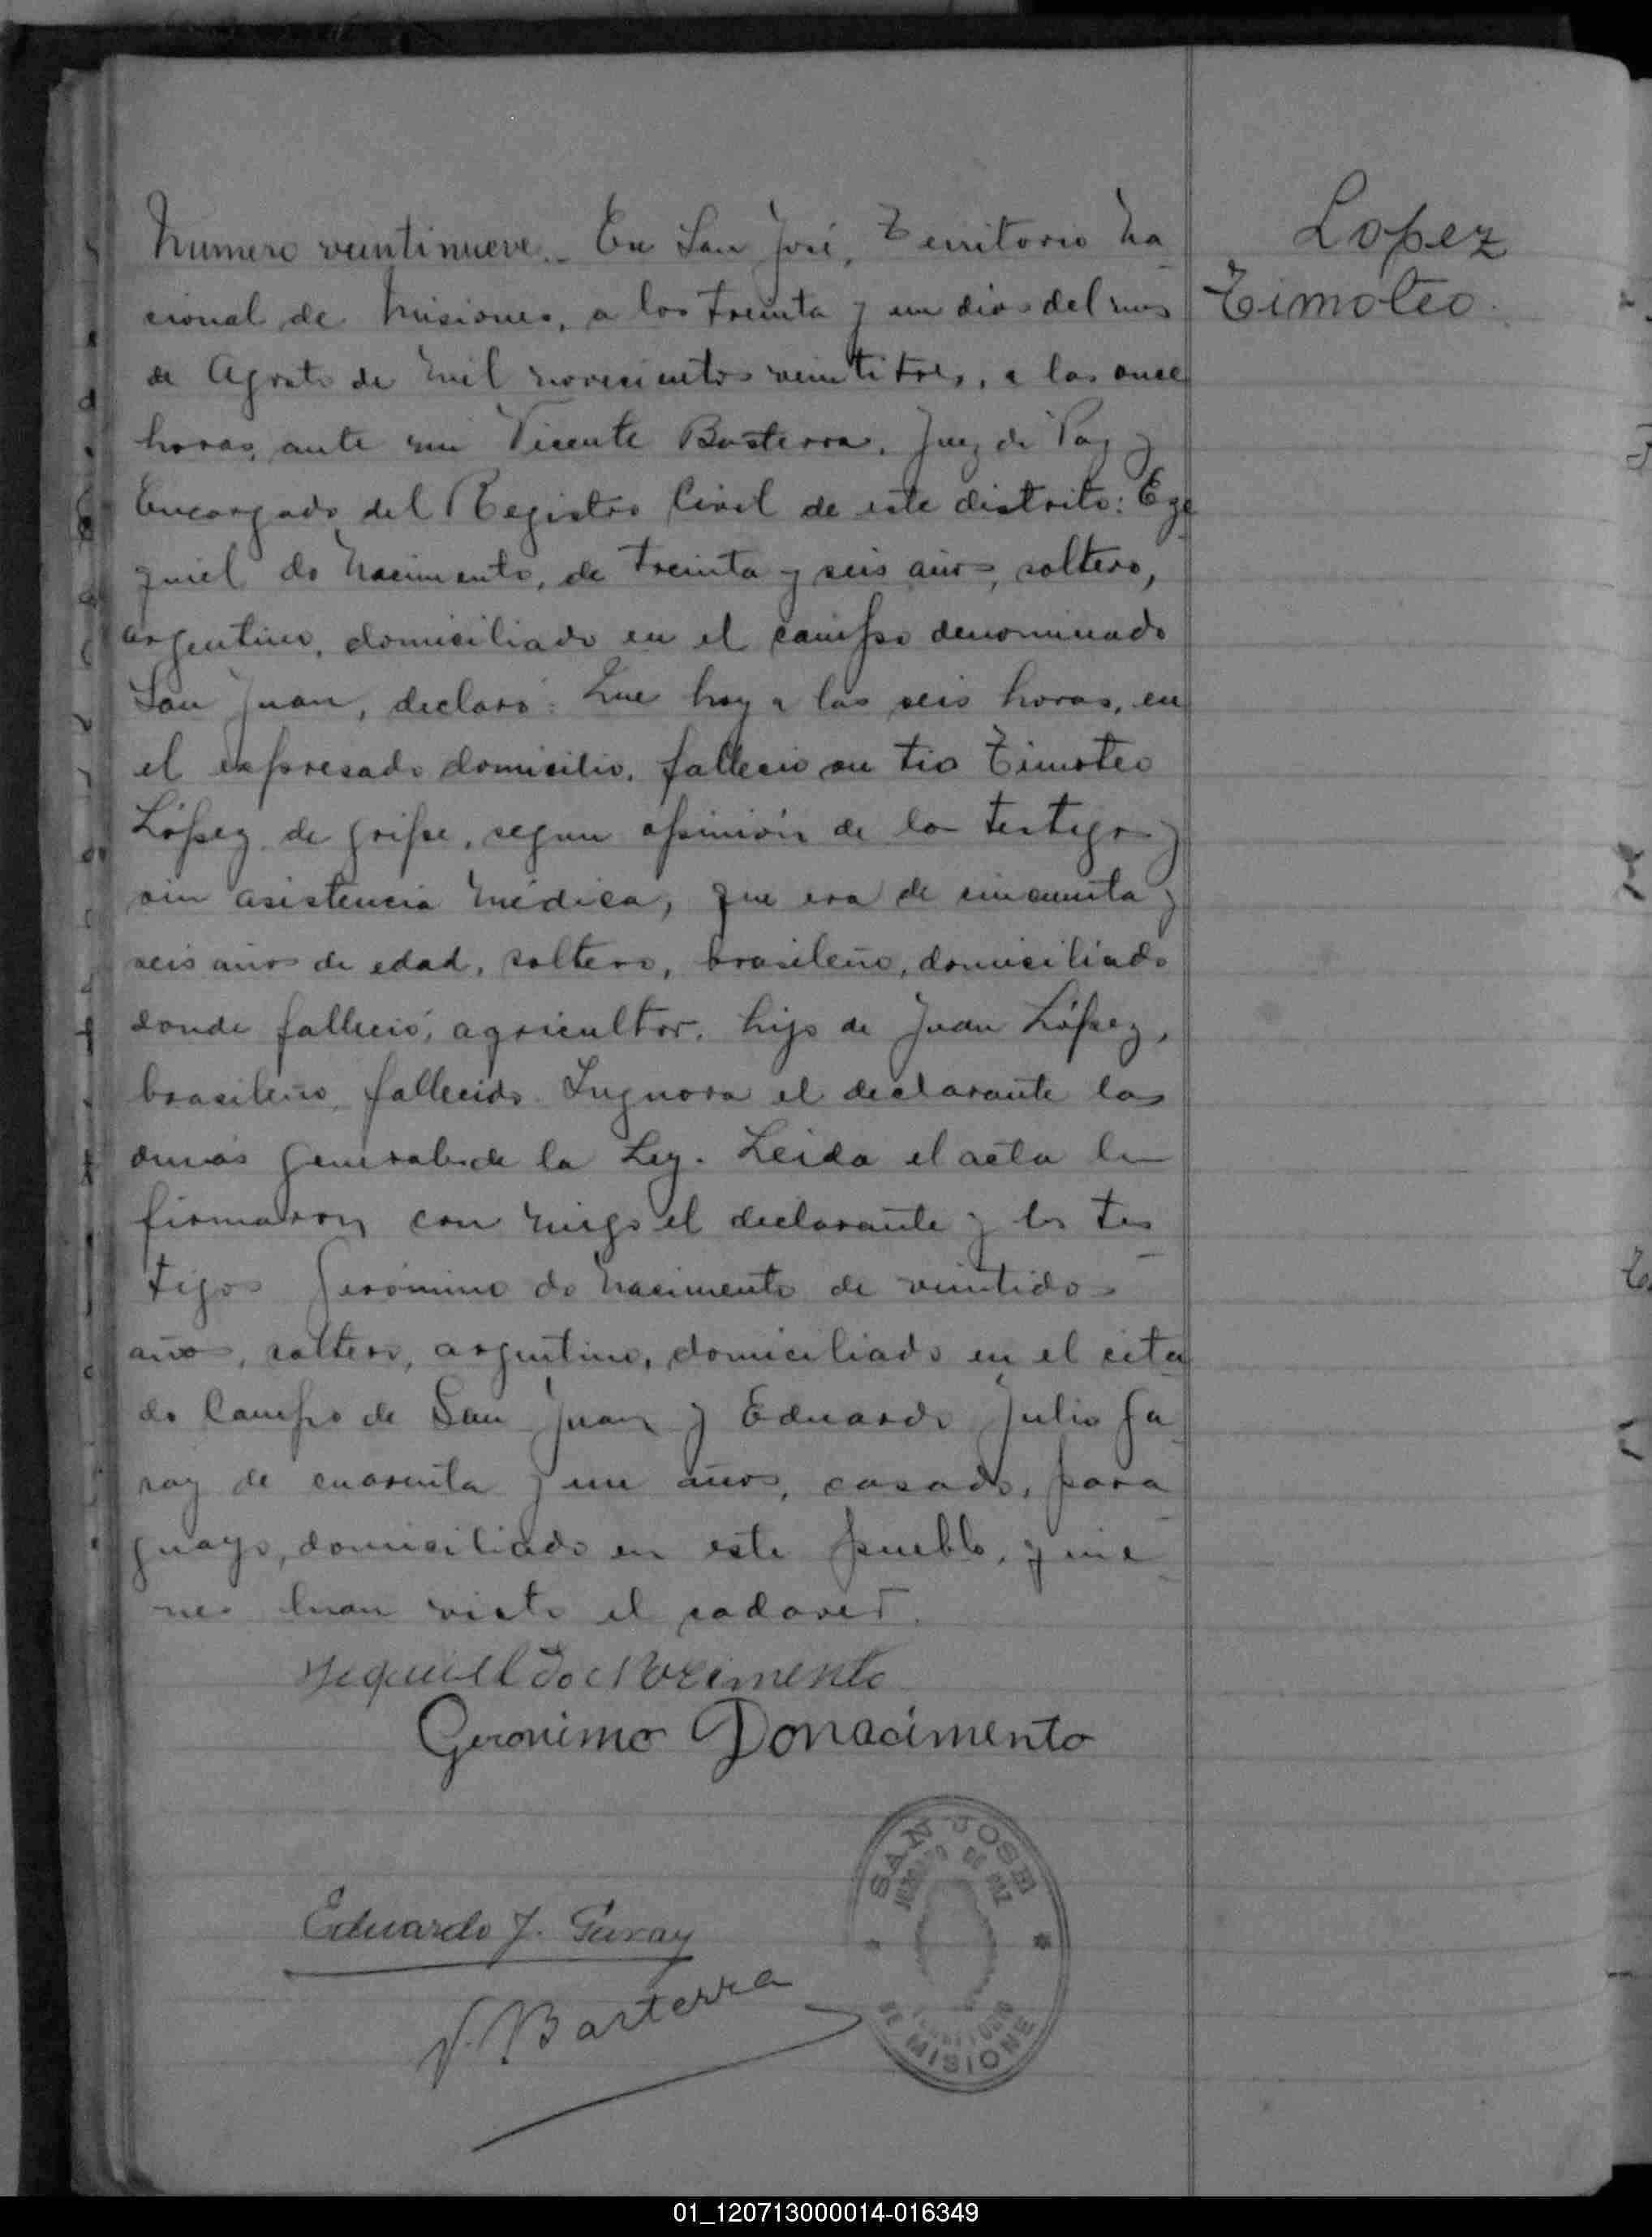 Lopez
Timoteo.
Numero veintinueve.- En San José, Territorio Na
cional de Misiones, a los treinta y un dias del mes
de Agosto de mil novecientos veintitres, a las once
horas, ante mi Vicente Basterra, Juez de Paz y
Encargado del Registro Civil de este distrito: Eze
quiel do Nacimento, de treinta y seis años, soltero,
argentino, domiciliado en el campo denominado
San Juan, declaró: Que hoy a las seis horas, en
el expresado domicilio, fallecio su tio Timoteo
López de gripe, segun opinión de los testigos y
sin asistencia médica, que era de cincuenta y
seis años de edad, soltero, brasileño, domiciliado
donde falleció, agricultor, hijo de Juan López,
brasileño, fallecido. Ingnora el declarante las
demás generales de la Ley. Leida el acta la
firmaron con migo el declarante y los tes
tigos Gerónimo do Nacimento de veintidos
años, soltero, argentino, domiciliado en el cita
do Campo de San Juan y Eduardo Julio Ga
ray de cuarenta y un años, casado, para
guayo, domiciliado en este pueblo, quie
nes han visto el cadaver.
Geronimo Donacimento
Eduardo J. Garay
V. Basterra
SAN JOSE
JUZGADO DE PAZ
TERRITORIO
DE MISIONES
01_120713000014-016349